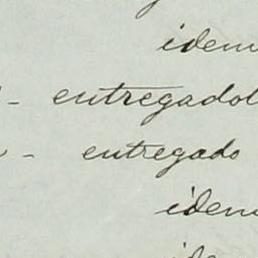 idem
- entregado
- entregado
idem